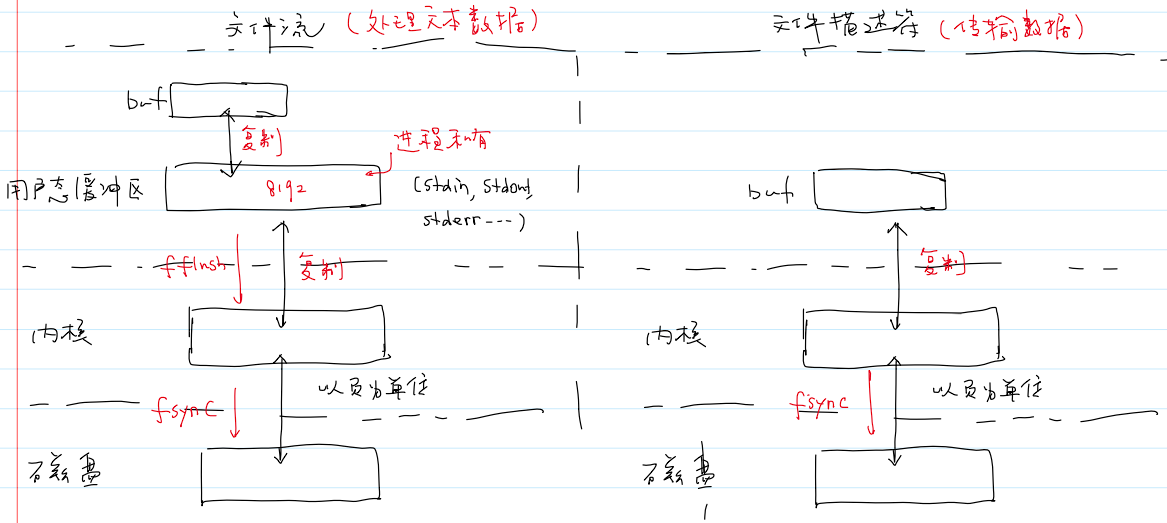 文件流 (处理文本数据)
文件描述符 (传输数据)
buf
复制
进程私有
用户态缓冲区
8192
(stdin, stdout,
stderr ---)
buf
fflush
复制
复制
内核
内核
以页为单位
以页为单位
fsync
fsync
磁盘
磁盘